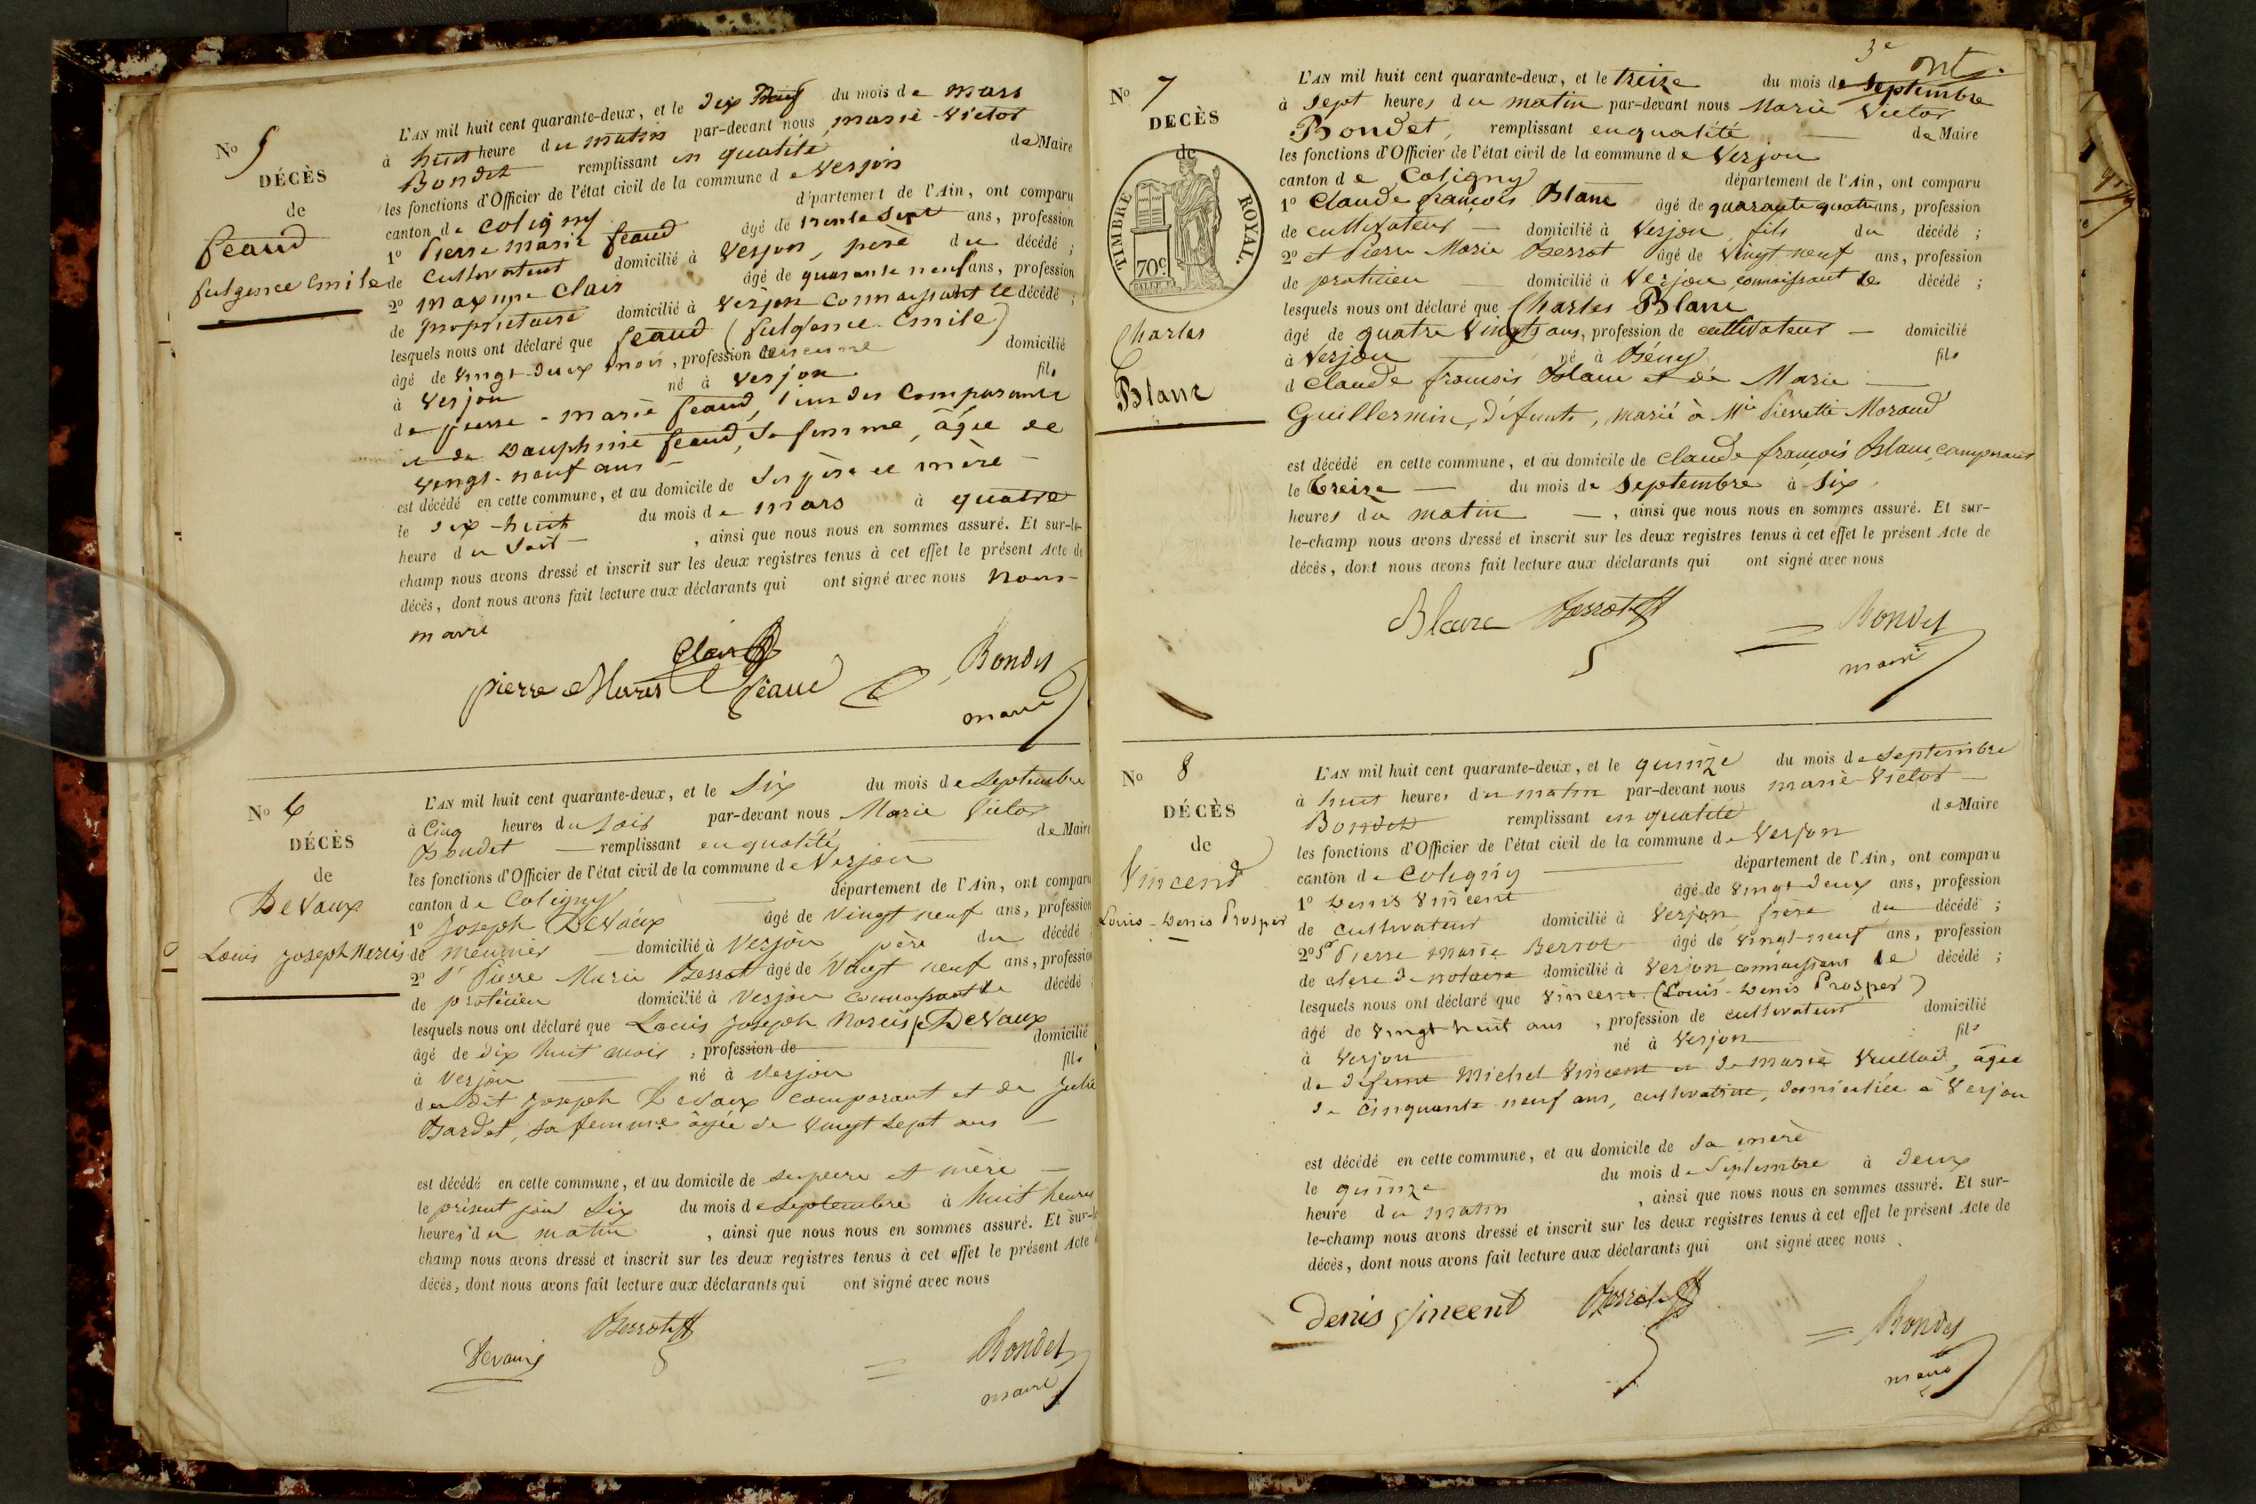 No 5
DÉCÈS
de
feaud
fulgence Emile
L'AN mil huit cent quarante-deux, et le dix neuf du mois de mars
à huit heure du matin par-devant nous marie-Victor
Bondet remplissant en qualité de Maire
les fonctions d'Officier de l'état civil de la commune de Verjon
canton de Coligny département de l'Ain, ont comparu
1o Pierre marie feaud âgé de trente sept ans, profession
de cultivateur domicilié à Verjon, père du décédé ;
2o maxime Clair âgé de quarante neuf ans, profession
de propriétaire domicilié à Verjon connaissant le décédé ;
lesquels nous ont déclaré que feaud (fulgence-Emile)
âgé de vingt-deux mois, profession domicilié
à Verjon né à Verjon fils
de pierre-marie feaud, l'un des comparants
et de Dauphine feaud, sa femme, âgée de
vingt-neuf ans
est décédé en cette commune, et au domicile de ses père et mère
le dix-huit du mois de mars à quatre
heure du soir , ainsi que nous nous en sommes assuré. Et sur-le-
champ nous avons dressé et inscrit sur les deux registres tenus à cet effet le présent Acte de
décès, dont nous avons fait lecture aux déclarants qui ont signé avec nous nous
maire
Clair
pierre Marie feaud
Bondet
maire
No 6
DÉCÈS
de
DeVaux
Louis Joseph Narcis
L'AN mil huit cent quarante-deux, et le Six du mois de Septembre
à Cinq heures du soir par-devant nous Marie Victor
Bondet remplissant en qualité de Maire
les fonctions d'Officier de l'état civil de la commune de Verjon
canton de Coligny département de l'Ain, ont comparu
1o Joseph DeVaux âgé de Vingt neuf ans, profession
de meunier domicilié à Verjon père du décédé
2o Sr Pierre Marie Berrot âgé de Vingt neuf ans, profession
de praticien domicilié à Verjon connaissant le décédé
lesquels nous ont déclaré que Louis Joseph Narcis DeVaux
âgé de dix huit mois, profession de domicilié
à Verjon né à Verjon fils
du dit Joseph DeVaux comparant et de Julie
Bardet, sa femme âgée de vingt sept ans
est décédé en cette commune, et au domicile de ses père et mère
le présent jour Six du mois de Septembre à huit heures
heures du matin , ainsi que nous nous en sommes assuré. Et sur-le
champ nous avons dressé et inscrit sur les deux registres tenus à cet effet le présent Acte
décès, dont nous avons fait lecture aux déclarants qui ont signé avec nous
Berrot
Devaux
Bondet
maire
3e
No 7
DECÈS
de
TIMBRE ROYAL.
70c
Charles
Blanc
L'AN mil huit cent quarante-deux, et le treize du mois de Septembre
à Sept heures du matin par-devant nous Marie Victor
Bondet, remplissant en qualité de Maire
les fonctions d'Officier de l'état civil de la commune de Verjon
canton de Coligny département de l'Ain, ont comparu
1o Claude françois Blanc âgé de quarante quatre ans, profession
de cultivateur domicilié à Verjon fils du décédé ;
2o et Pierre Marie Berrot âgé de Vingt neuf ans, profession
de praticien domicilié à Verjon, connaissant le décédé ;
lesquels nous ont déclaré que Charles Blanc
âgé de quatre Vingts ans, profession de cultivateur domicilié
à Verjon né à Bény fils
d Claude françois Blanc et de Marie
Guillermin, défunts, marié à Mie Pierrette Morand
est décédé en cette commune, et au domicile de Claude françois Blanc, comparant
le treize du mois de Septembre à Six
heures du matin , ainsi que nous nous en sommes assuré. Et sur-
le-champ nous avons dressé et inscrit sur les deux registres tenus à cet effet le présent Acte de
décès, dont nous avons fait lecture aux déclarants qui ont signé avec nous
Blanc Berrot
Bondet
maire
No 8
DÉCÈS
de
Vincend
Louis-Denis Prosper
L'AN mil huit cent quarante-deux, et le quinze du mois de septembre
à huit heures du matin par-devant nous marie-Victor
Bondet remplissant en qualité de Maire
les fonctions d'Officier de l'état civil de la commune de Verjon
canton de Coligny département de l'Ain, ont comparu
1o Denis Vincent âgé de Vingt-deux ans, profession
de cultivateur domicilié à Verjon, frère du décédé ;
2o Sr Pierre Marie Berrot âgé de vingt-neuf ans, profession
de clerc de notaire domicilié à Verjon connaissant le décédé ;
lesquels nous ont déclaré que Vincent (Louis-Denis Prosper)
âgé de vingt-huit ans, profession de cultivateur domicilié
à Verjon né à Verjon fils
de défunt Michel Vincent et de Marie Vuillod, âgée
de cinquante-neuf ans, cultivatrice, domiciliée à Verjon
est décédé en cette commune, et au domicile de sa mère
le quinze du mois de Septembre à deux
heure du matin , ainsi que nous nous en sommes assuré. Et sur-
le-champ nous avons dressé et inscrit sur les deux registres tenus à cet effet le présent Acte de
décès, dont nous avons fait lecture aux déclarants qui ont signé avec nous
denis Vincent Berrot
Bondet
maire